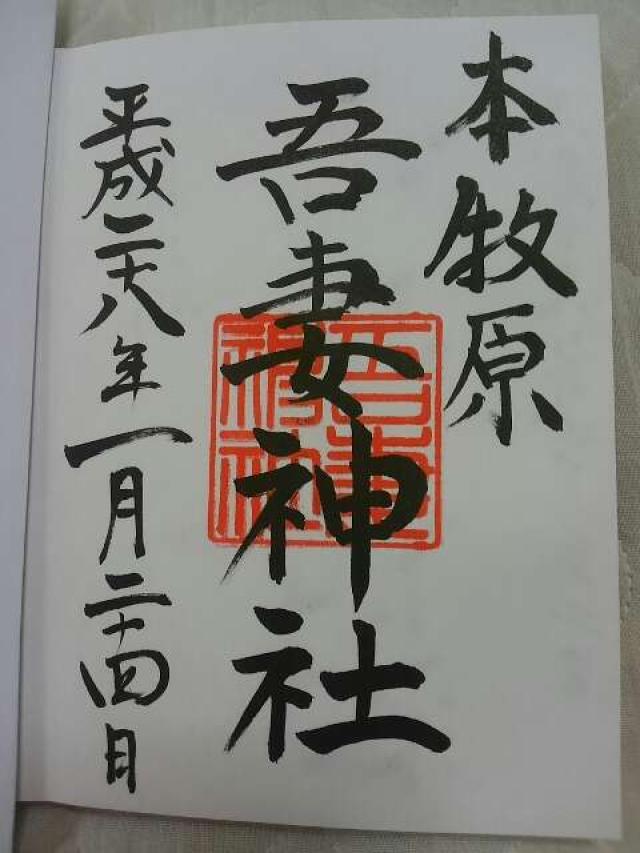 本牧原
吾妻神社
平成二十八年一月二十四日